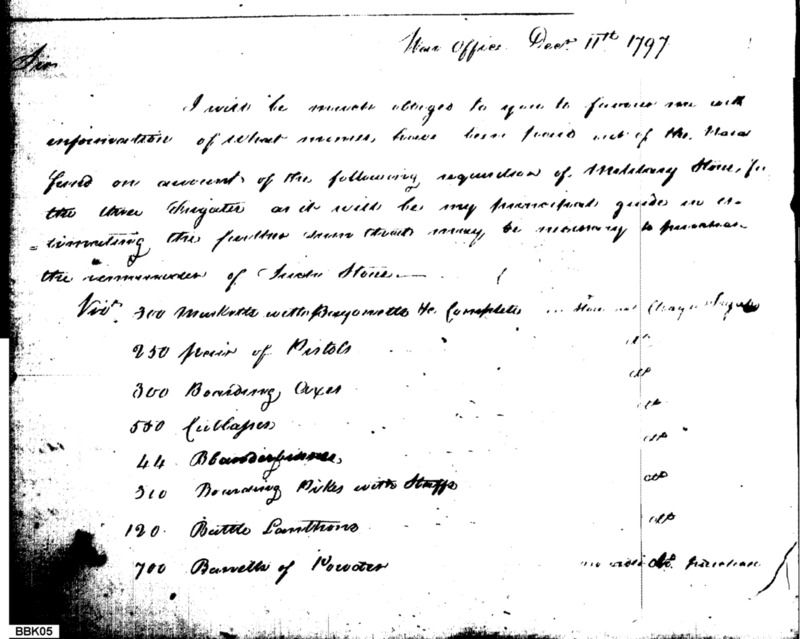 War Office Decr. 11th 1797
Sir
I will be much obliged to you to favour me with
information of what monies, have been paid out of the Naval
fund on account of the following requisition of Military Stores, for
the three Frigates as it will be my principal guide in es-
=timating the further sum that may be necessary to purchase
the remainder of Such Stores.—
Vizt. 300 Musketts with Bayonetts &c. Complete in Store not Charged
250 pair of Pistols do
300 Boarding Axes do
550 Cutlasses do
44 Blunderbusses, do
310 Boarding Pikes with Staffs do
120 Battle Lanthorns do
700 Barrells of Powder purchase
BBK05